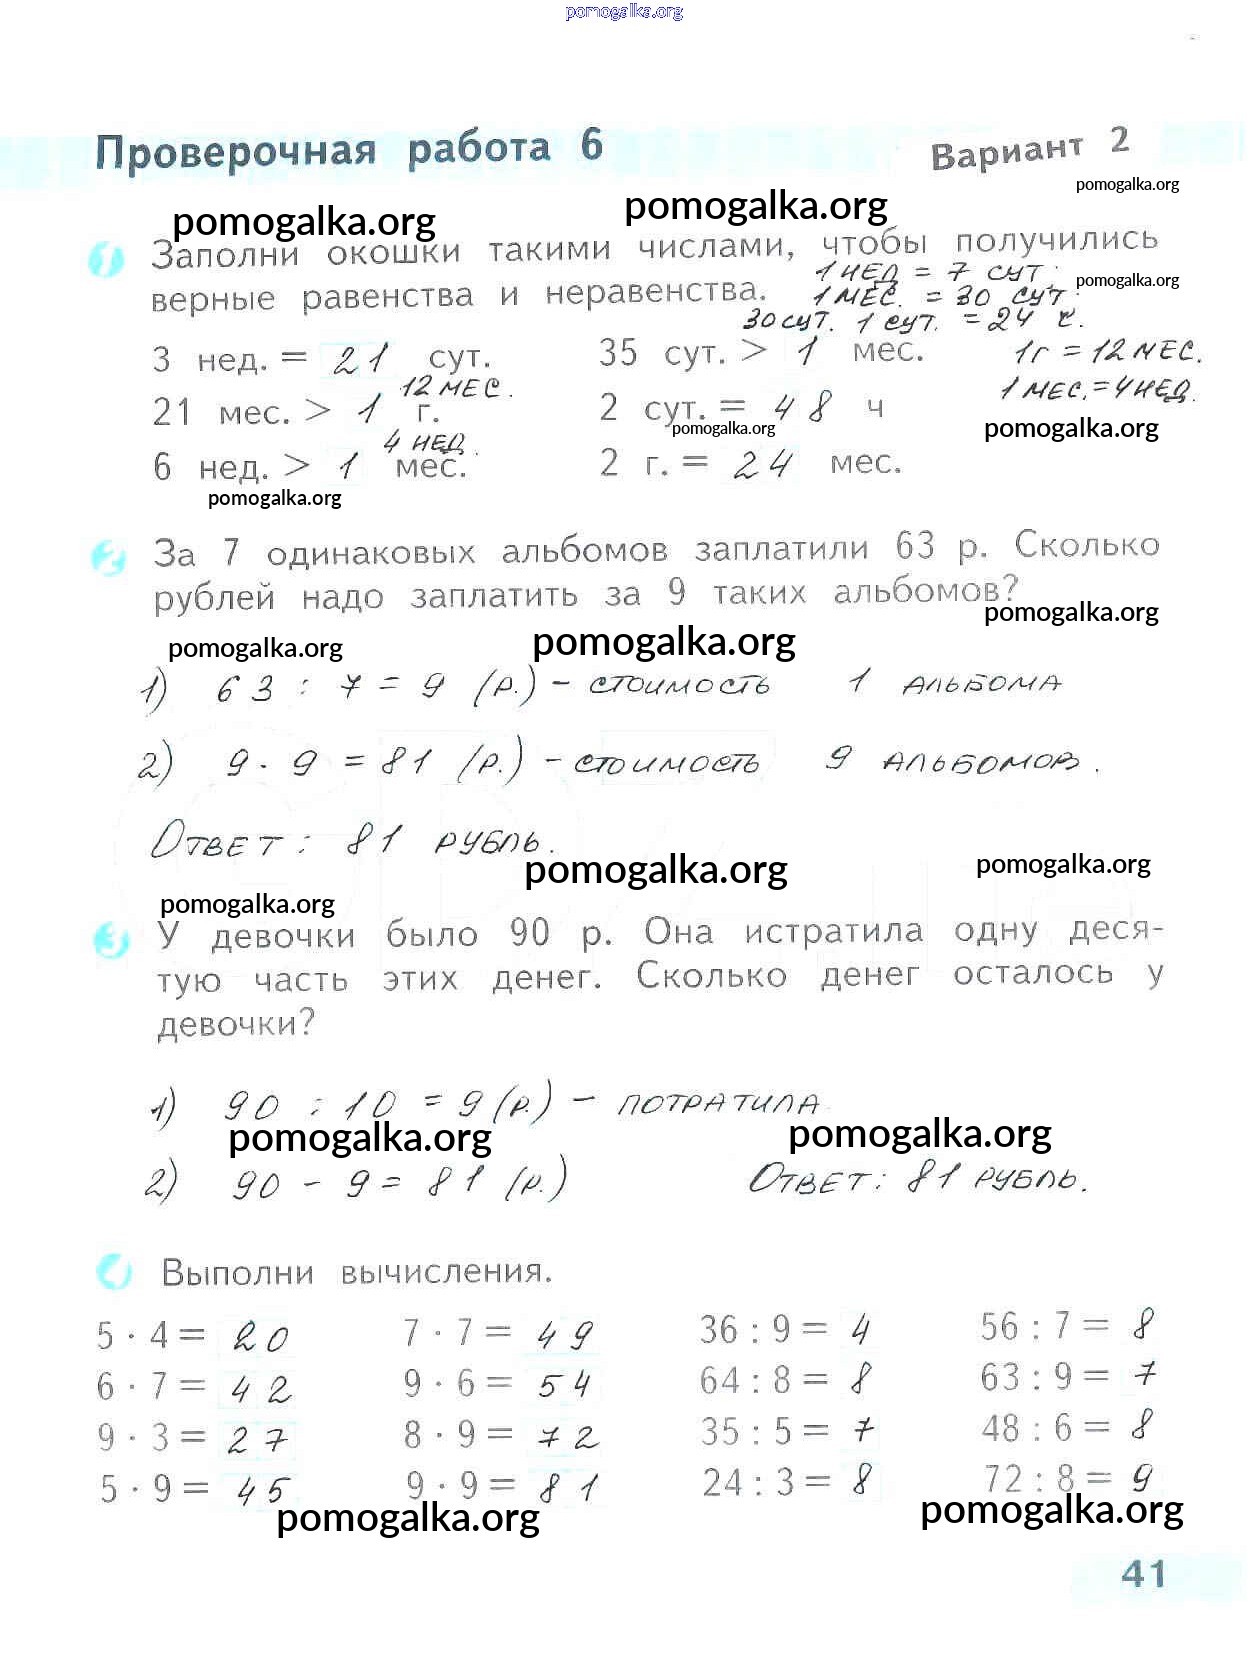 pomogalka.org
Проверочная работа 6 Вариант 2
pomogalka.org
pomogalka.org pomogalka.org
1 Заполни окошки такими числами, чтобы получились
1 НЕД = 7 СУТ. pomogalka.org
верные равенства и неравенства. 1 МЕС. = 30 СУТ.
30 СУТ. 1 СУТ. = 24 Ч.
3 нед. = 21 сут. 35 сут. > 1 мес. 1 Г = 12 МЕС.
12 МЕС. 1 МЕС. = 4 НЕД.
21 мес. > 1 г. 2 сут. = 48 ч
pomogalka.org pomogalka.org
4 НЕД.
6 нед. > 1 мес. 2 г. = 24 мес.
pomogalka.org
2 За 7 одинаковых альбомов заплатили 63 р. Сколько
рублей надо заплатить за 9 таких альбомов?
pomogalka.org
pomogalka.org pomogalka.org
1) 63 : 7 = 9 (р.) – СТОИМОСТЬ 1 АЛЬБОМА
2) 9 · 9 = 81 (р.) – СТОИМОСТЬ 9 АЛЬБОМОВ.
ОТВЕТ: 81 РУБЛЬ.
pomogalka.org pomogalka.org
pomogalka.org
3 У девочки было 90 р. Она истратила одну деся-
тую часть этих денег. Сколько денег осталось у
девочки?
1) 90 : 10 = 9 (р.) – ПОТРАТИЛА
pomogalka.org pomogalka.org
2) 90 – 9 = 81 (р.) ОТВЕТ: 81 РУБЛЬ.
4 Выполни вычисления.
5 · 4 = 20 7 · 7 = 49 36 : 9 = 4 56 : 7 = 8
6 · 7 = 42 9 · 6 = 54 64 : 8 = 8 63 : 9 = 7
9 · 3 = 27 8 · 9 = 72 35 : 5 = 7 48 : 6 = 8
5 · 9 = 45 9 · 9 = 81 24 : 3 = 8 72 : 8 = 9
pomogalka.org pomogalka.org
41